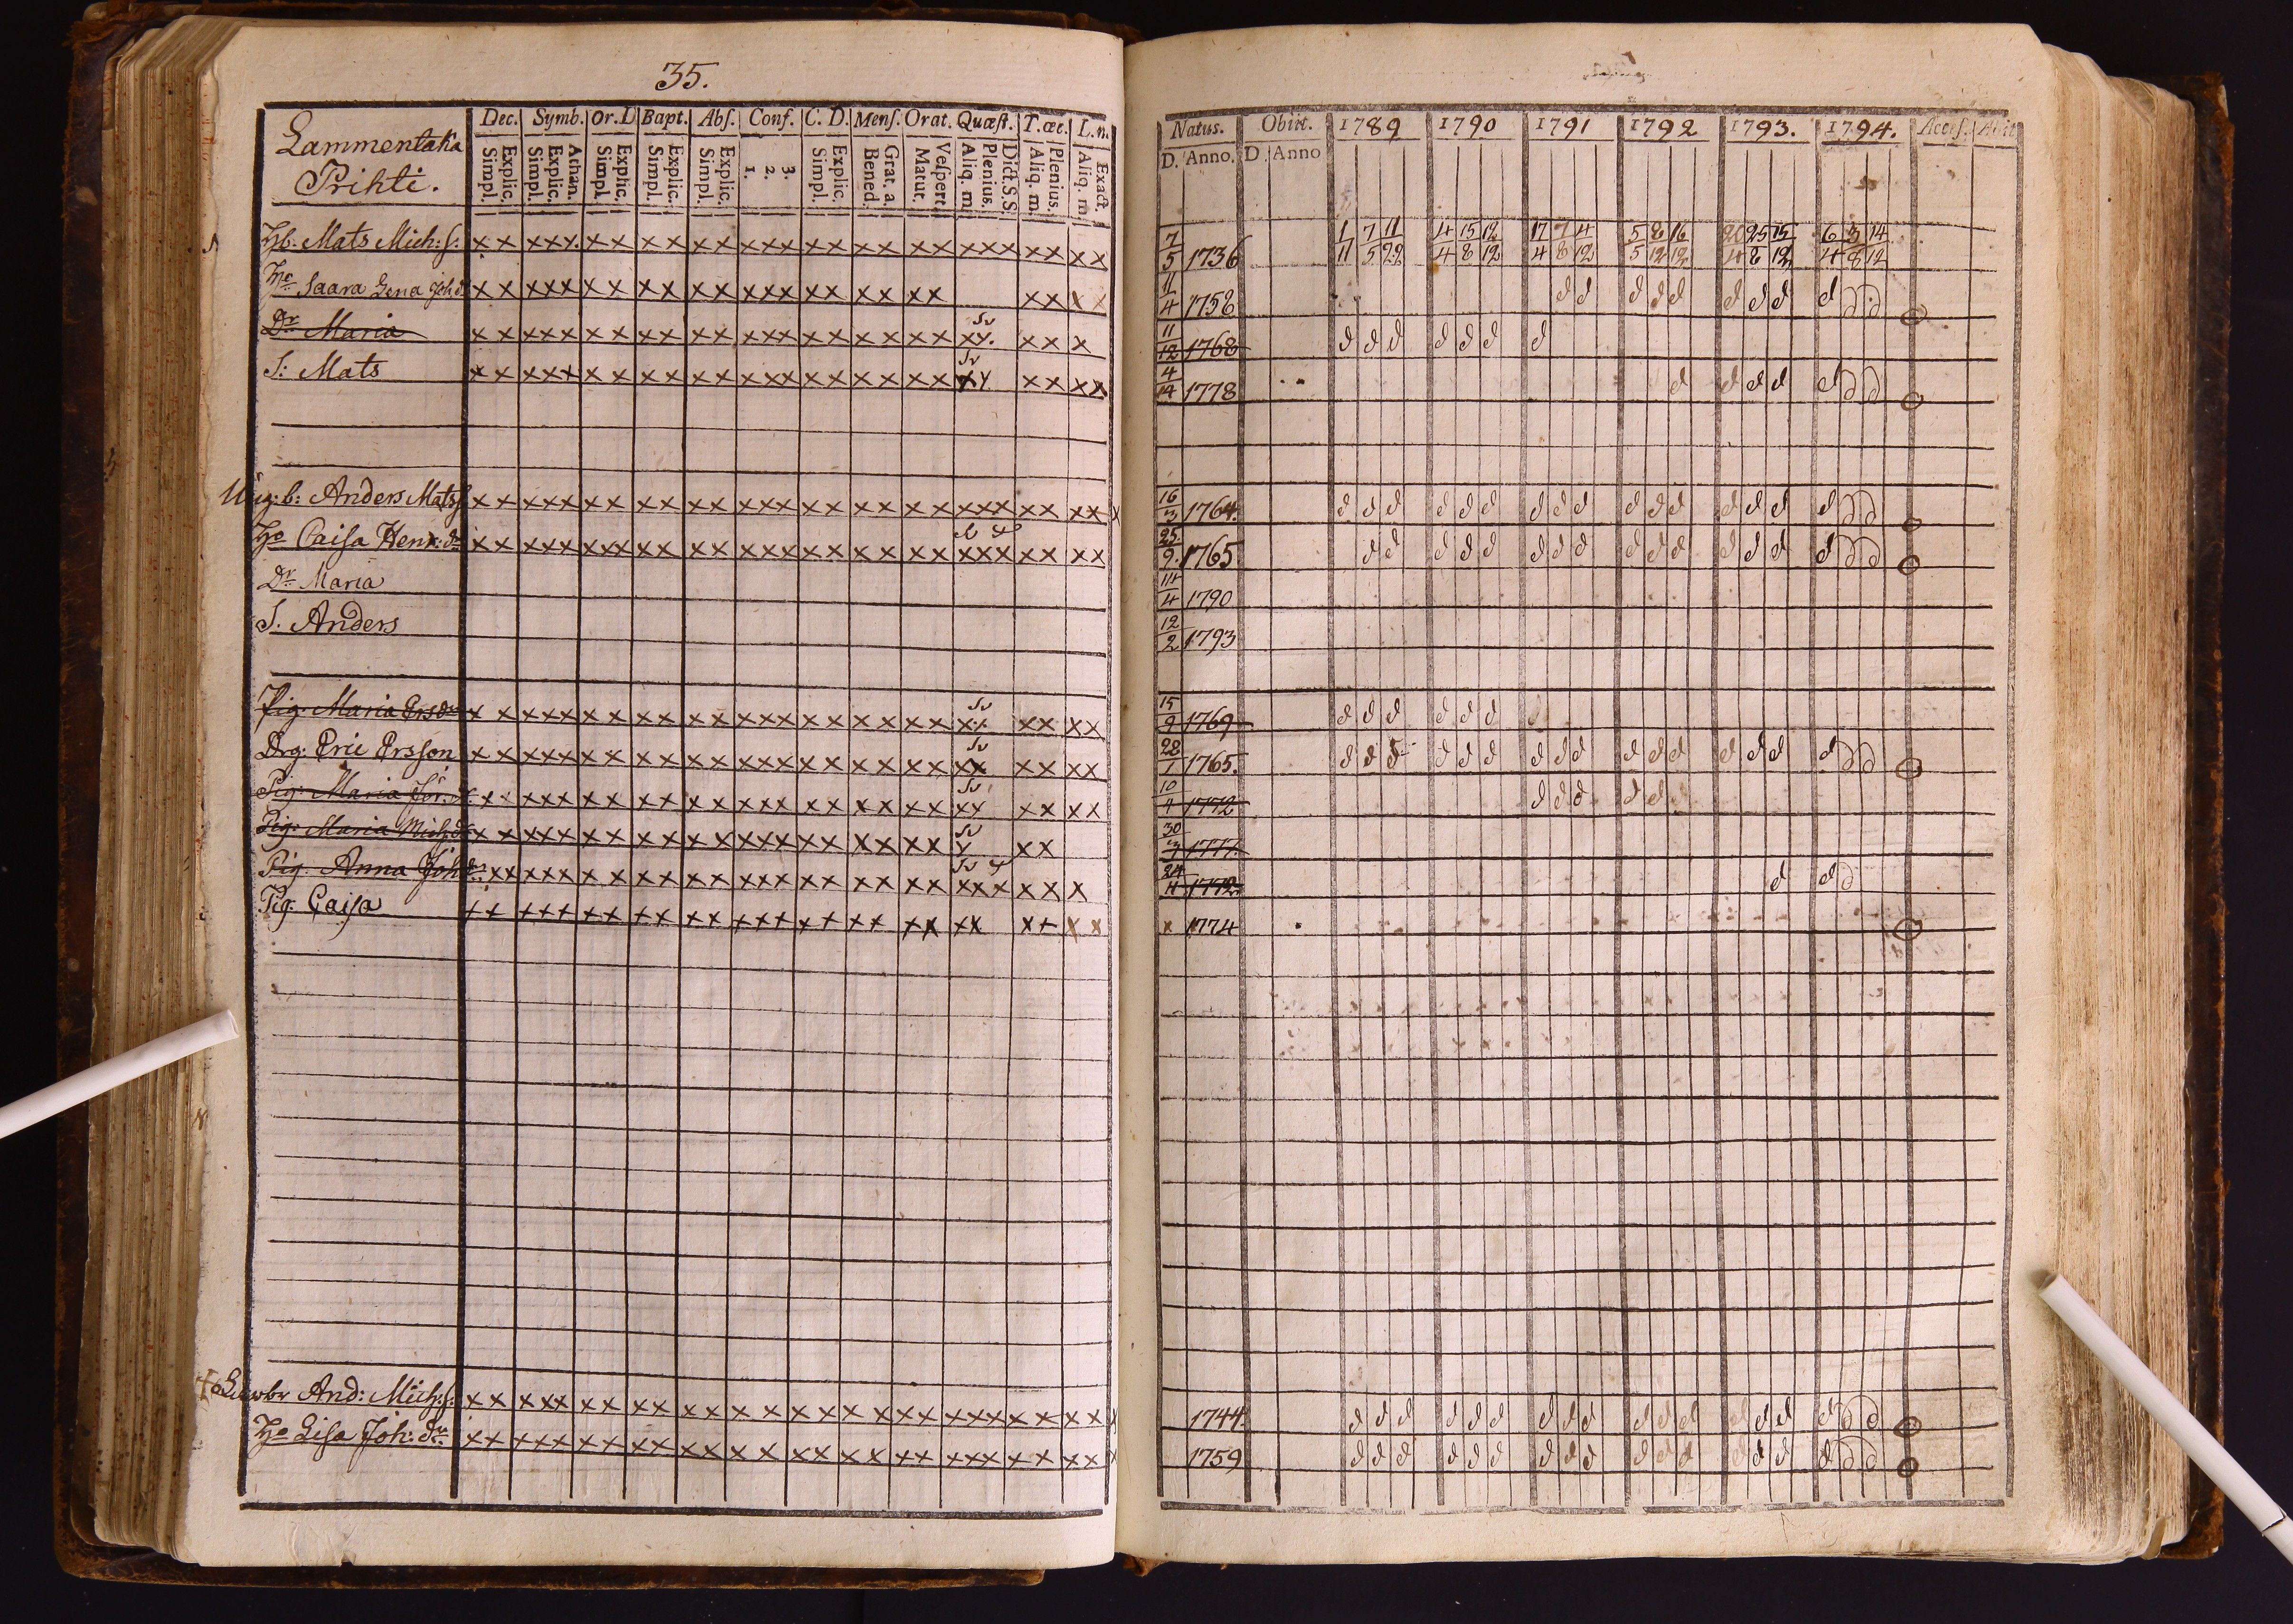 35.
Lammentaka
Prihti.
Dec. Symb. Or. D Bapt. Abſ. Conf. C. D. Menſ. Orat. Quæſt. T. œc. L. n.
Explic. Simpl. Athan. Explic. Simpl. Explic. Simpl. Explic. Simpl. Explic. Simpl. 3. 2. 1. Explic. Simpl. Grat. a. Bened. Veſpert. Matut. Dict. S.S. Plenius. Aliq. m. Plenius. Aliq. m. Exact. Aliq. m.
Natus. Obiit. 1789 1790 1791 1792 1793. 1794. Acceſ. Abiit
D. Anno. D. Anno
Hb. Mats Mich: s: 7/5 1736 1/11 7/5 11/22 4/4 15/8 12/12 17/4 7/8 4/12 5/5 8/12 16/12 20/4 25/8 15/12 6/4 3/8 14/12
Ho Saara Lena Joh: d. 11/4 1758
Dr Maria 11/12 1768
S: Mats 4/14 1778
Ung: b: Anders Mats s 16/3 1764.
Ho Caisa Henr: dr 25./9. 1765
Dr Maria 14/4 1790
S. Anders 12/2 1793
Pig. Maria Ersdr 15/9 1769
Drg: Eric Ersson 28/1 1765.
Pig: Maria Jör. d. 10/4 1772
Pig: Maria Mich: d. 30/3 1777.
Pig. Anna Joh: dr 24/11 1772
Pig. Caisa x 1774
And: Mich: s: 1744
Ho Lisa Joh: dr. 1759